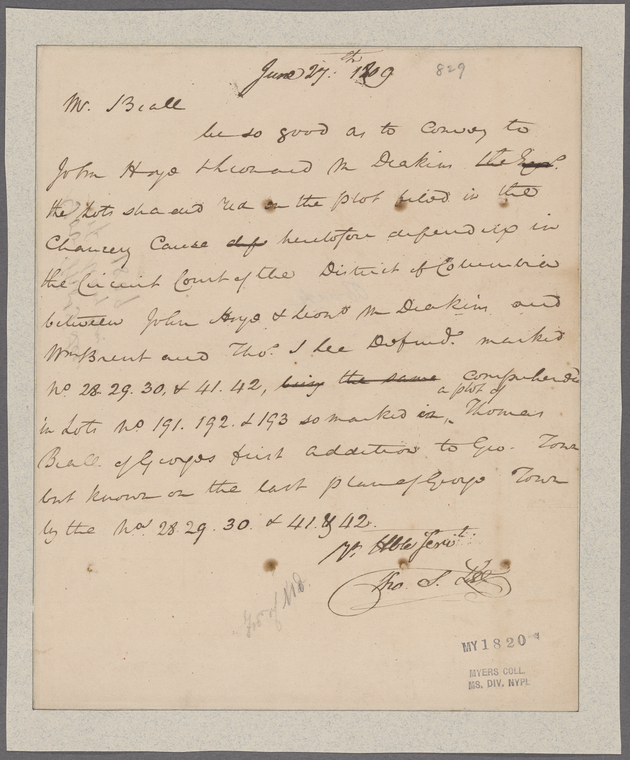 June 27.th 1809
829
Mr. Beall
be so good as to Convey to
John Hoye & Leonard M Deakins the
the Lots shaded red on the plot filed in the
Chancery Cause heretofore depending in
the Circuit Court of the District of Columbia
between John Hoye & Leond M Deakins and
Wm Brent and Thos. S Lee Defend.s marked
No 28. 29. 30, & 41. 42, being the same comprehended
a plot of
in Lots No 191. 192. & 193 so marked in Thomas
Beall of Georges first addition to Geo. Town
but known on the last plan of George Town
by the Nos 28. 29. 30. & 41. & 42.
Yr. Hble Servt.
Tho. S. Lee
Gov. of Md.
MY 1820
MYERS COLL.
MS. DIV. NYPL